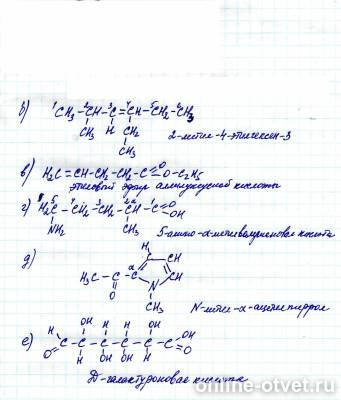 б) ¹CH₃-²CH-³C=⁴CH-⁵CH₂-⁶CH₃
CH₃ H CH₂
CH₃
2-метил-4-этилгексен-3
в) H₂C=CH-CH₂-CH₂-C=O O-C₂H₅
этиловый эфир аллилуксусной кислоты
г) H₂⁵C-⁴CH₂-³CH₂-²CH-¹C=O OH
NH₂ CH₃ α
5-амино-α-метилвалериановая кислота
д) H CH
H₃C-C-C α CH
O N
CH₃
N-метил-α-ацетилпиррол
е) H OH H H OH OH
O C-C-C-C-C-C=O
H OH OH H
D-галактуроновая кислота
online-otvet.ru